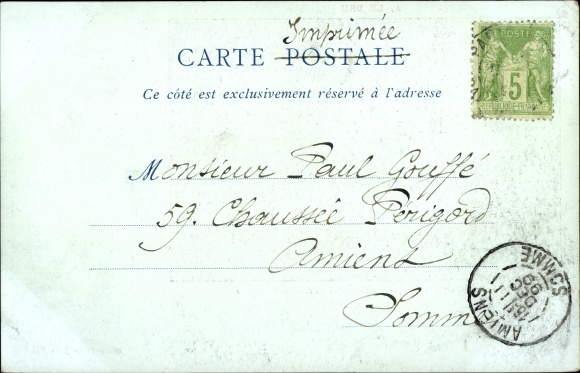 Imprimée
CARTE POSTALE
Ce côté est exclusivement réservé à l'adresse
POSTE
5
Monsieur Paul Gouffé
59. Chaussée Périgord
Amiens
Somme
AMIENS
SOMME
DEC
99